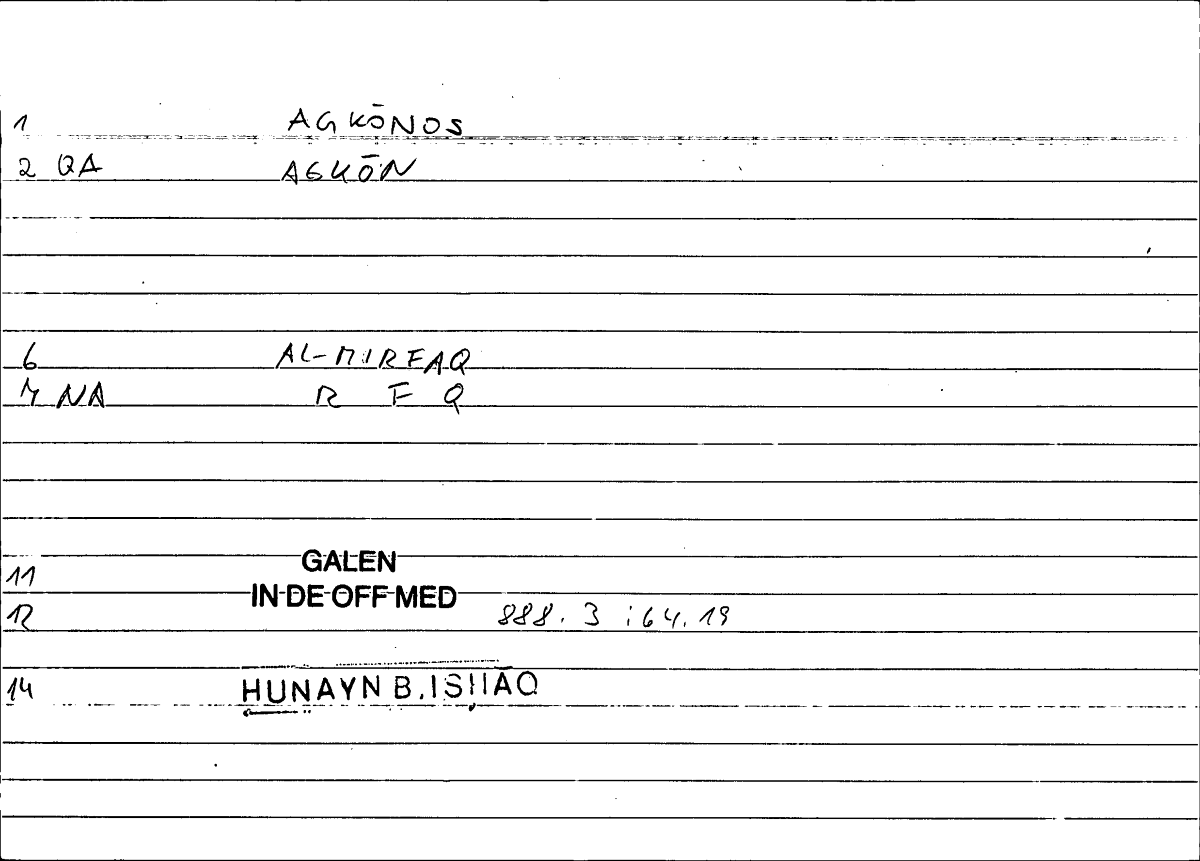 1 AGKŌNOS
2 QA AGKŌN
6 AL-MIRFAQ
7 NA R F Q
11 GALEN
12 IN DE OFF MED 888.3 : 64.19
14 HUNAYN B. ISḤĀQ